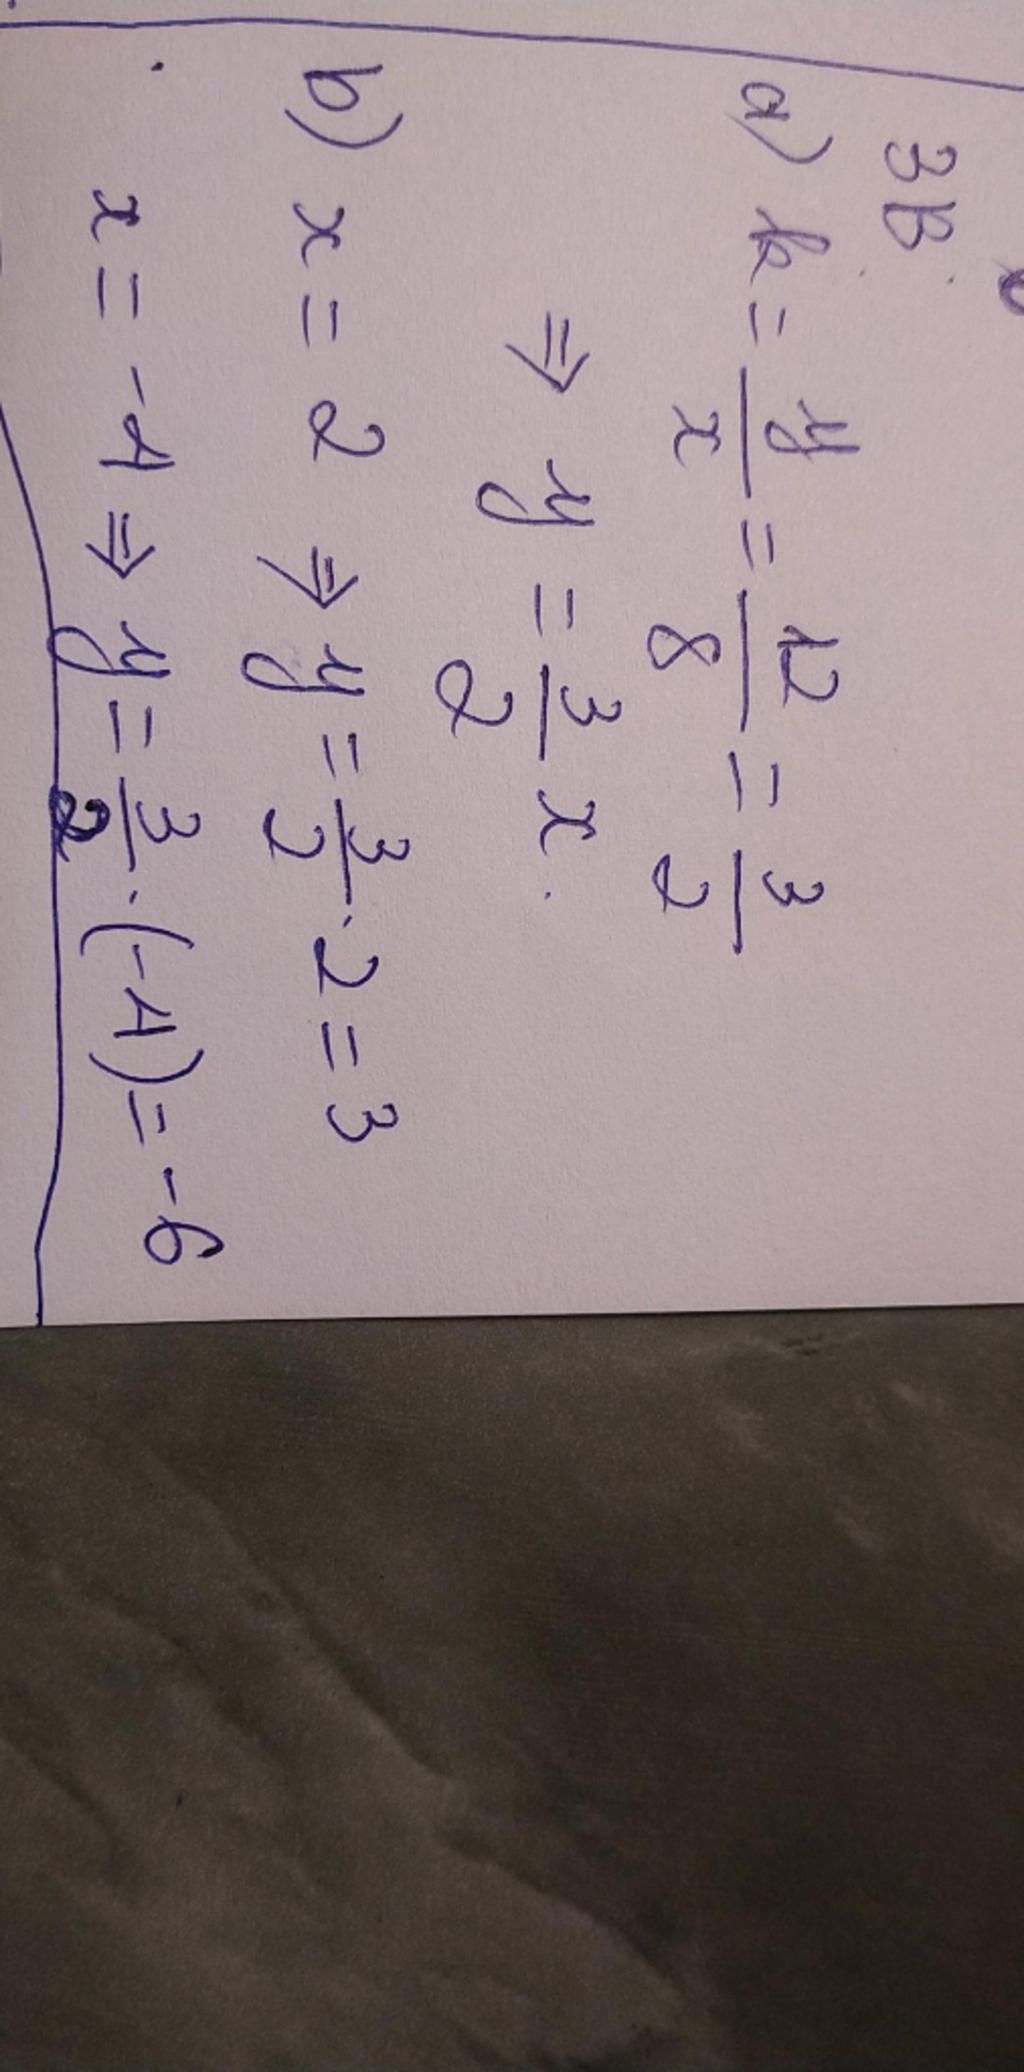 3B.
a) k = y/x = 12/8 = 3/2
⇒ y = 3/2 x.
b) x = 2 ⇒ y = 3/2 . 2 = 3
x = -4 ⇒ y = 3/2 . (-4) = -6